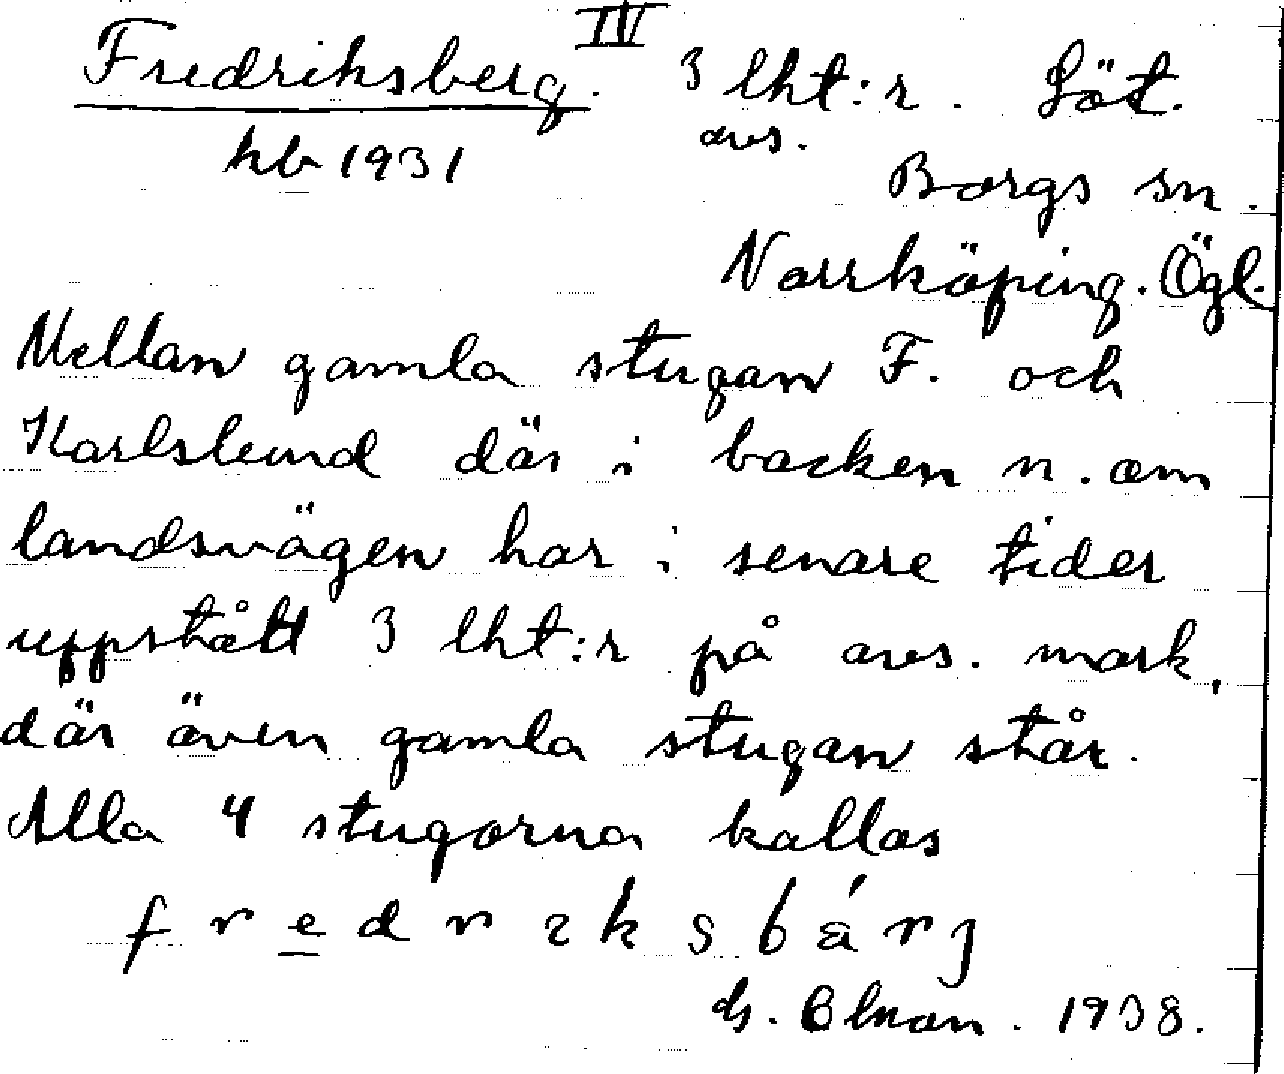 IV
Fredriksberg. 3 lht:r. Löt.
hb 1931 avs.
Borgs sn.
Norrköping. Ögl.
Mellan gamla stugan F. och
Karlslund där i backen n. om
landsvägen har i senare tider
uppstått 3 lht:r på avs. mark,
där även gamla stugan står.
Alla 4 stugorna kallas
fredrɩksbárj
1938.